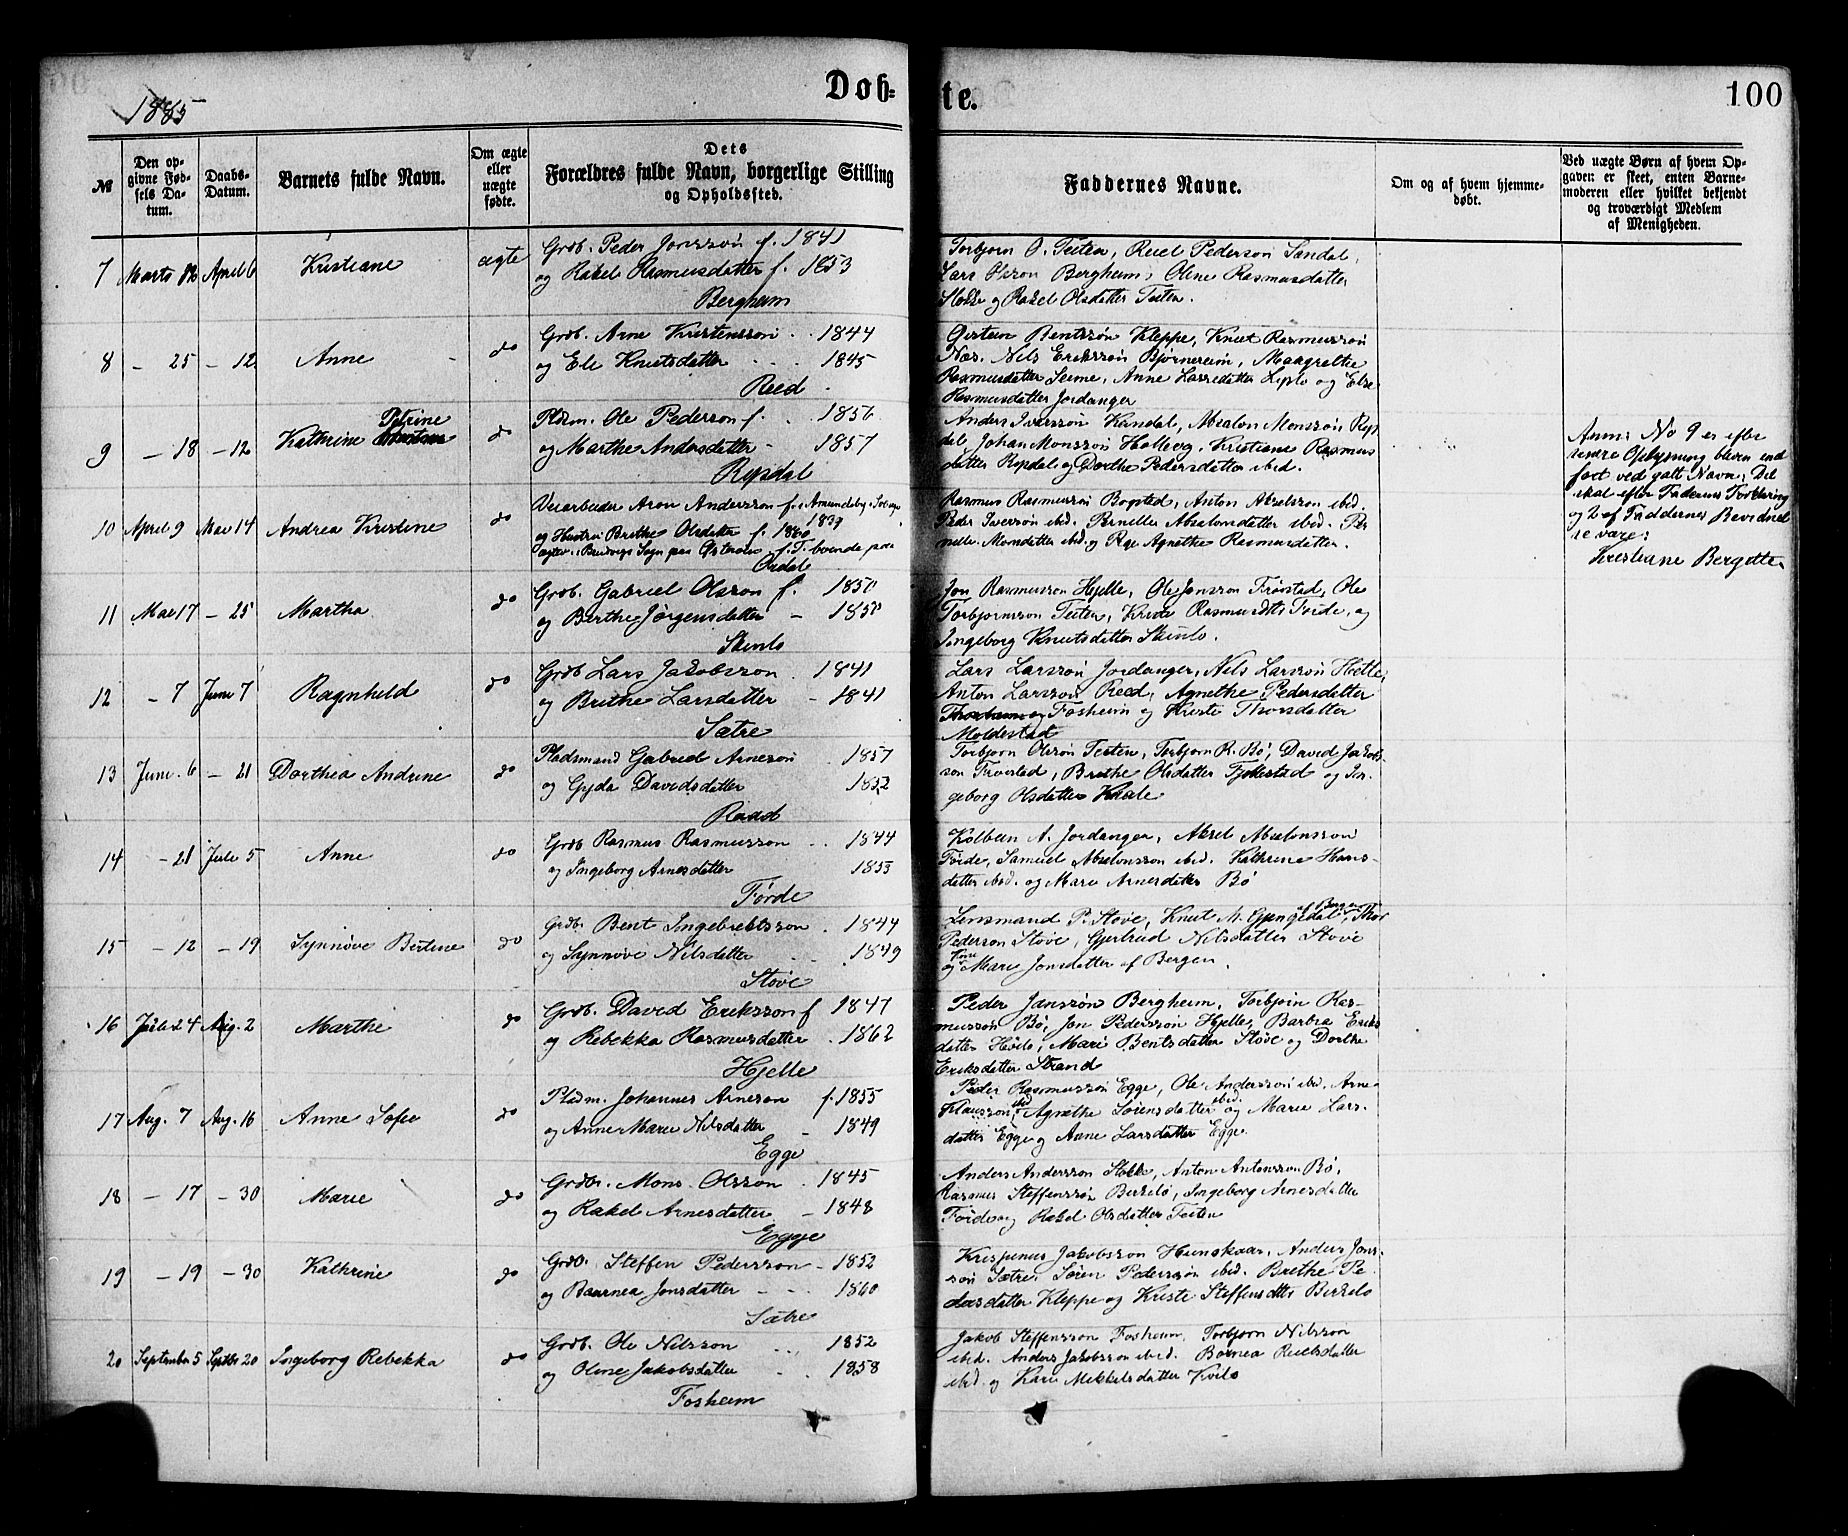 1885
Døb=
te.
100
№
Den op-
givne Fød-
sels Da-
tum.
Daabs-
Datum.
Barnets fulde Navn.
Om ægte
eller
uægte
fødte.
Dets
Forældres fulde Navn, borgerlige Stilling
og Opholdssted.
Faddernes Navne.
Om og af hvem hjemme-
døbt.
Ved uægte Børn af hvem Op-
gaven er skeet, enten Barne-
moderen eller hvilket bekjendt
og troværdigt Medlem
af Menigheden.
7 Marts April 6 Kristiane ægte
Grdb. Peder Jonssøn f. 1841
og Rakel Rasmusdatter f. 1853
Bergheim
Torbjørn O. Teiten, Reiel Pederson Sandal,
Lars Olsson Bergheim, Oline Rasmusdatter
Stokke og Rakel Olsdatter Teiten.
8 – 25 – 12 Anne do
Grdb. Arne Kristenssøn 1844
og Eli Knutsdatter 1845
Reed
Øistein Bentssøn Kleppe, Knut Rasmussøn
Næs. Nils Erikssøn Bjørnereim, Margrethe
Rasmusdatter Seime, Anne Larsdatter og Else
Rasmusdatter Jordanger
9 – 18 – 12 Kathrine Petrine do
Pldm. Ole Pederson f. 1856
og Marthe Andersdatter – 1857
Rysdal
Anders Iverssøn Kandal, Absalon Monssøn Rys-
dal, Johan Monssøn Holleog, Kristiane Rasmus
datter Rysdal og Dorthe Pedersdatter ibid.
Anm: No 9 er efter
senere Oplysning bleven ind
ført ved galt Navn; Det
skal efter Faderens Forklaring
og 2 af Faddernes Bevidnel
se være:
Kristiane Bergitte.
10 April 9 Mai 14 Andrea Kristine do
Veiarbeider Aron Anderssøn f. i Amundeby i
1839
og Hustru Brithe Olsdatter f. 1860
boende paa
Ordal
Rasmus Rasmussøn Bogstad, Anton Akselssøn ibid.
Peder Iverssøn ibid. Pernille Absalonsdatter ibid. Per-
nille Monsdatter ibid. og Agnethe Rasmusdatter.
11 Mai 17 – 25 Martha do
Grdb. Gabriel Olsson f. 1850
og Berthe Jørgensdatter – 1850
Skinlo
Jon Rasmusson Hjelle, Ole Jonsson Frøstad, Ole
Torbjørnsson Teiten, Kriste Rasmusdtr Førde, og
Ingeborg Knutsdatter Skinlo.
12 – 7 Juni 7 Ragnhild do
Grdb Lars Jakobsson 1841
og Brithe Larsdatter – 1841
Sætre
Lars Larssøn Jordanger, Nils Larssøn Hætle,
Anton Larssøn Reed, Agnethe Pedersdatter
Fosheim og Kriste Thorsdatter
Moldestad
13 Juni 6 – 21 Dorthea Andrine do
Pladsmand Gabriel Arneson 1857
og Gjøa Davidsdatter 1852
Raad
Torbjørn Olssøn Teiten, Torbjørn R. Bø, David Jakob-
son Frøstad, Brithe Olsdatter Fjellestad og In-
geborg Olsdatter
14 – 21 Juli 5 Anne do
Grdb Rasmus Rasmusson 1844
og Ingeborg Arnesdatter 1853
Førde
Kolbein A. Jordanger, Aksel Absalonsson
Førde, Samuel Absalonsson ibid. Kathrine Hans-
datter ibid. og Mari Arnesdatter Bø
15 – 12 – 19 Synnøve Bertine do
Grdb. Bent Ingebretsson 1844
og Synnøve Nilsdatter 1849
Støve
Lensmand P. Støve, Knut M. Gjengedal af Bergen, Thor
Pederson Støve, Gjertrud Nilsdatter Støve
og Mari Jonsdatter af Bergen.
16 Juli 24 Aug. 2 Marthe do
Grdb. David Eriksson f 1847
og Rebekka Rasmusdatter 1862
Hjelle
Peder Janssøn Bergheim, Torbjørn Ras-
musson Bø, Jon Pederssøn Hjelle, Barbra Eriks
datter Høilo, Mari Bentsdatter Støve og Dorthe
Eriksdatter Strand
17 Aug. 7 Aug. 16 Anne Sofie do
Pladm. Johannes Arneson f. 1855
og Anne Marie Nilsdatter – 1849
Egge
Peder Rasmussøn Egge, Ole Anderssøn ibid. Arne
Klaussøn ibid, Agnethe Sørensdatter ibid. og Marie Lars-
datter Egge og Anne Larsdatter Egge.
18 – 17 – 30 Marie do
Grdb. Mons Olsson 1845
og Rakel Arnesdatter – 1848
Egge
Anders Andersson Stokke, Anton Antonsson Bø,
Rasmus Steffenssøn Birkelo, Ingeborg Arnesdatter
Førde og Rakel Olsdatter Teiten
19 – 19 – 30 Kathrine do
Grdb. Steffen Pedersson – 1852
og Jonsdatter 1860
Sætre
Krispinus Jakobsson Hunskaar, Anders Jons-
søn Sætre, Søren Pederssøn ibid. Brethe Pe-
dersdatter Kleppe og Kriste Steffensdtr Birkelo
20 September 5 Septbr 20 Ingeborg Rebekka do
Grdb. Ole Nilsson 1852
og Oline Jakobsdatter 1858
Fosheim
Jakob Steffensson Fosheim, Torbjørn Nilsson
ibid. Anders Jakobsson ibid. Reielsdatter
ibid. og Kari Mikkelsdatter Kvile